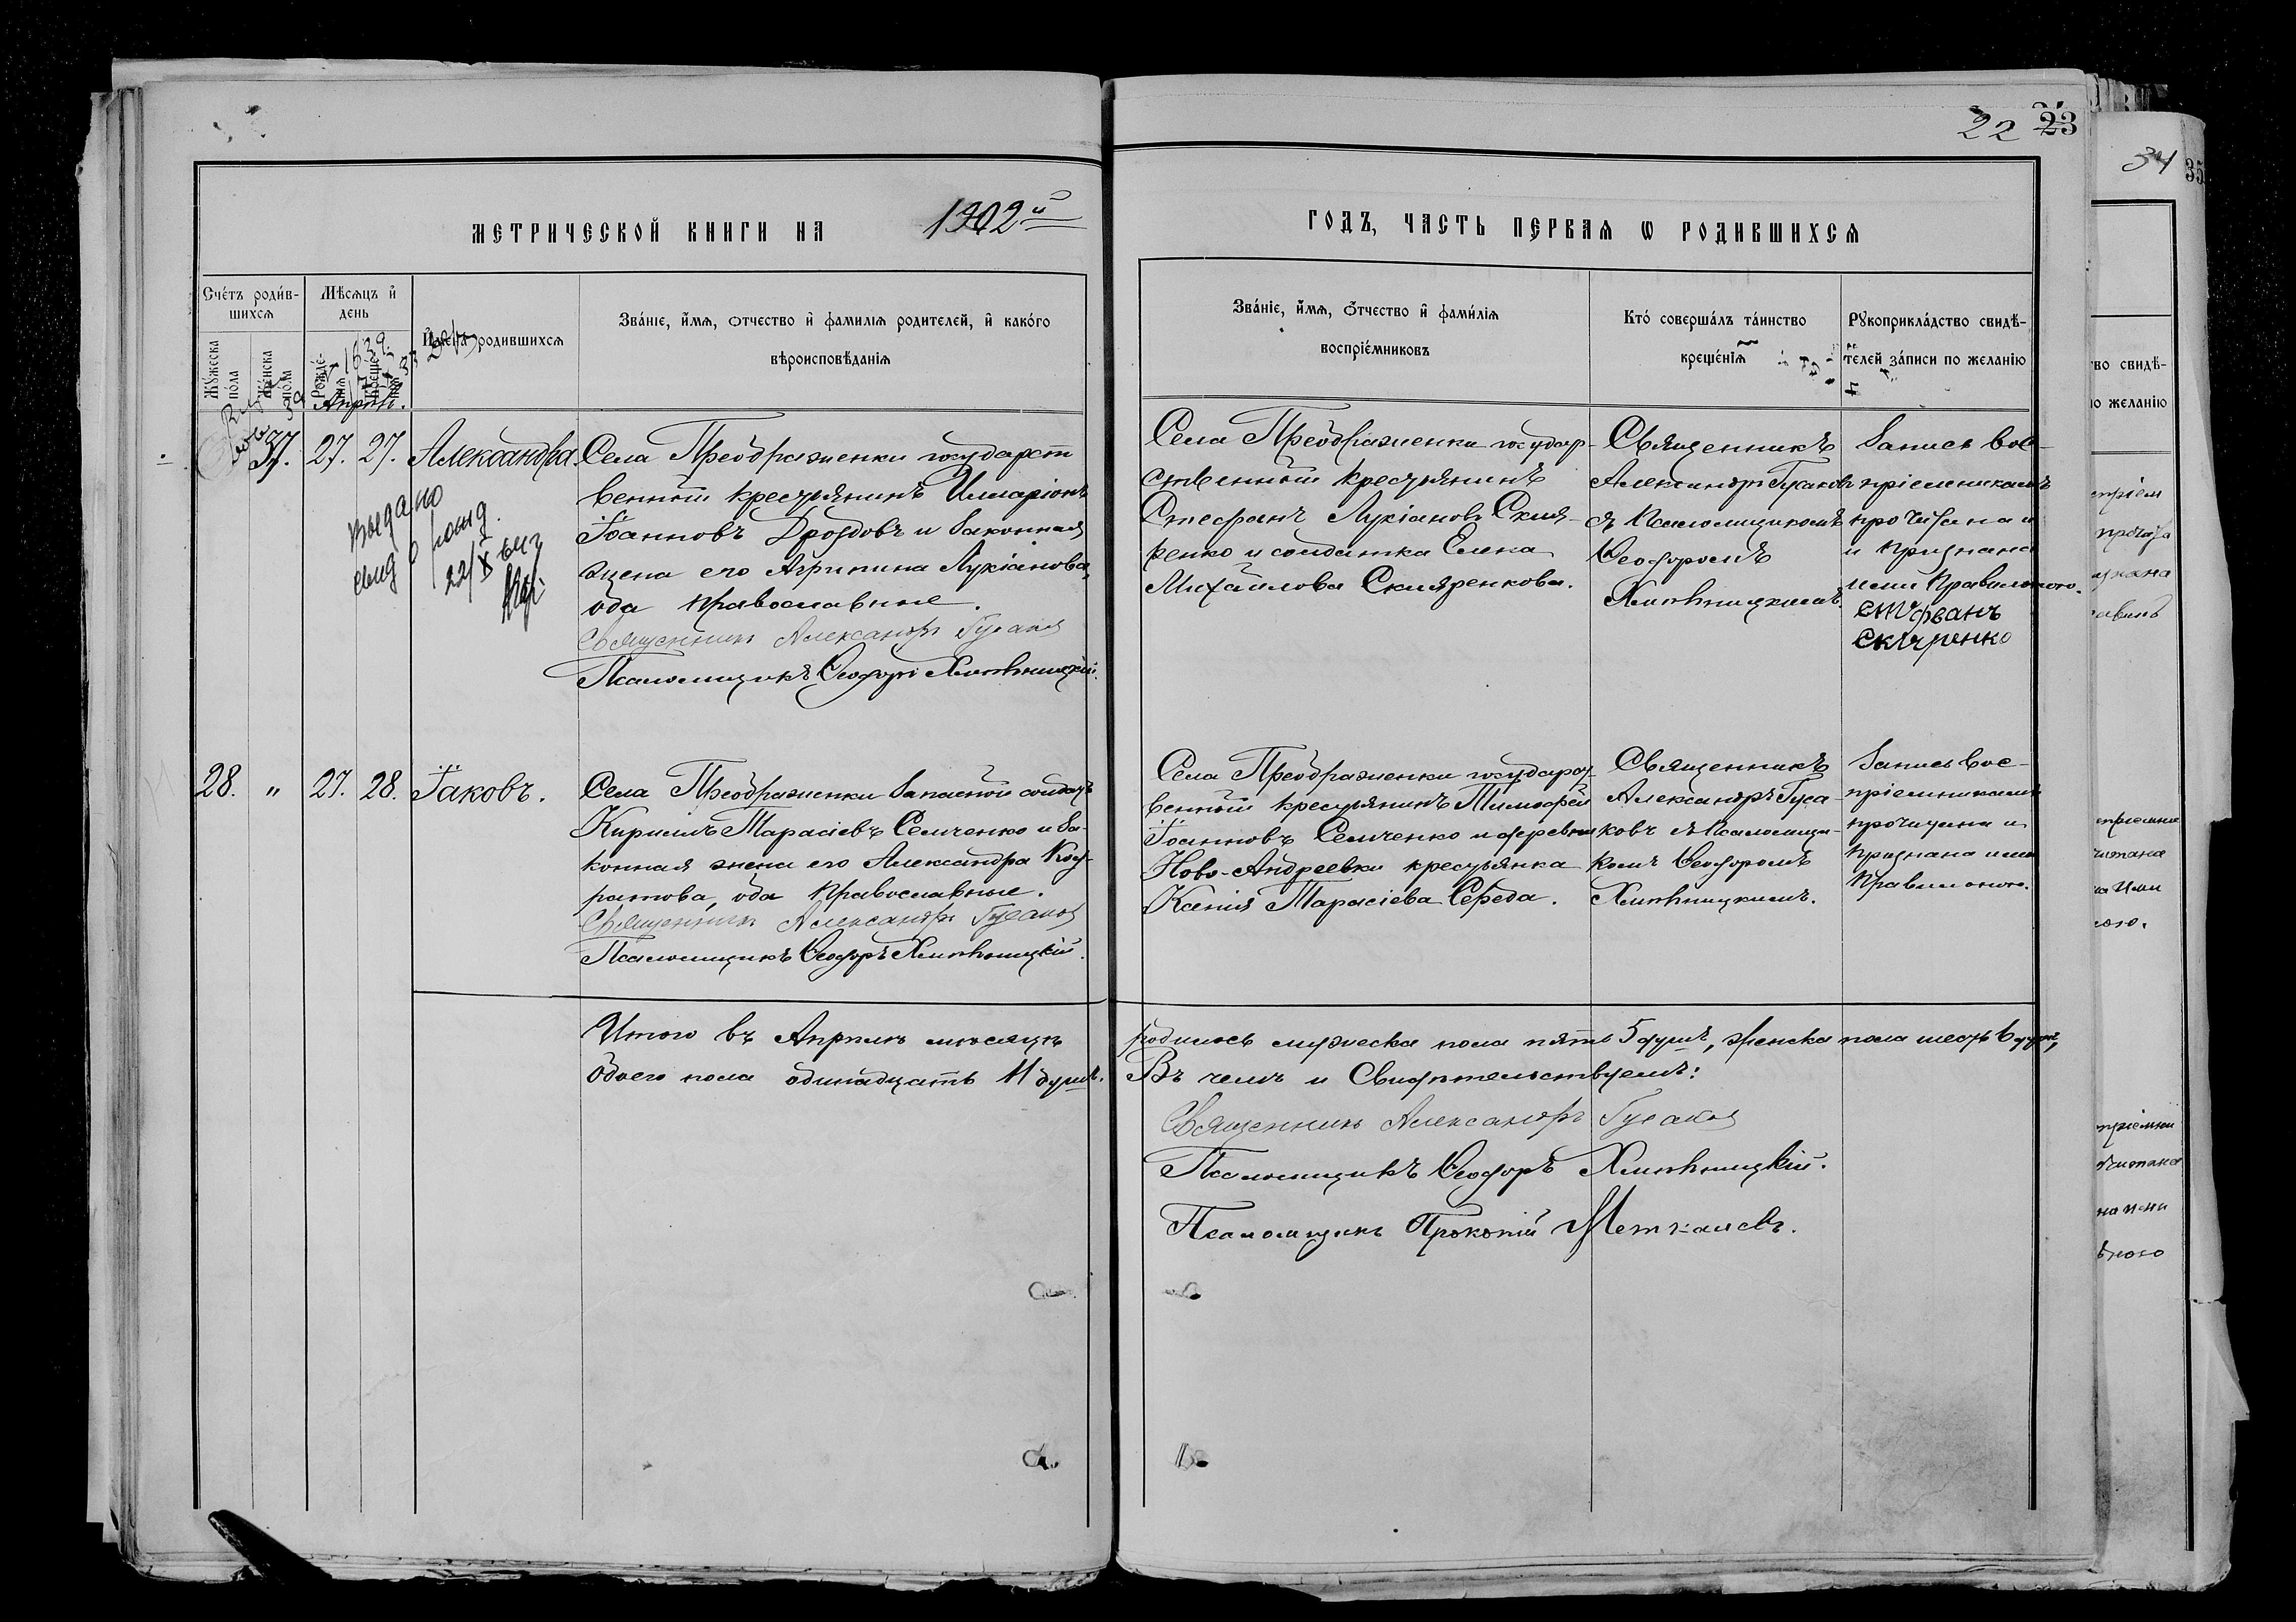 22 23
34 35
МЕТРИЧЕСКОЙ КНИГИ НА 1902й
ГОДЪ, ЧАСТЬ ПЕРВАЯ Ѡ РОДИВШИХСЯ
Счетъ родив-
шихся
Мѣсяцъ и
день
Мужеска
пола
Женска
пола
Рожде-
ния
Креще-
ния
Имена родившихся
Званіе, имя, отчество и фамилія родителей, и какого
вѣроисповѣданія
Званіе, имя, отчество и фамилія
воспріемниковъ
Кто совершалъ таинство
крещенія
Рукоприкладство свидѣ-
телей записи по желанію
Апрѣль.
37. 27. 27. Александра.
Села Преображенки государст
венный крестьянинъ Илларіонъ
Іоанновъ Дроздовъ и законная
жена его Агрипина Лукіанова,
оба православные.
Священникъ Александръ Гусаковъ
Псаломщикъ Ѳеодоръ Хмѣльницкій.
Села Преображенки государ-
ственный крестьянинъ
Стефанъ Лукіановъ Скля-
ренко и солдатка Елена
Михайлова Скляренкова.
Священникъ
Александръ Гусаковъ
съ Псаломщикомъ
Ѳеодоромъ
Хмѣльницкимъ.
Запись вос-
пріемникамъ
прочитана и
и признана
ими правильною.
Стефванъ
Скляренко
выдано
свид о рожд.
22/X
28. " 27. 28. Іаковъ.
Села Преображенки запасной солдатъ
Кириллъ Тарасіевъ Семченко и за-
конная жена его Александра Код-
ратова, оба православные.
Священникъ Александръ Гусаковъ
Псаломщикъ Ѳеодоръ Хмѣльницкій.
Села Преображенки государст-
венный крестьянинъ Тимофей
Іоанновъ Семченко и деревни
Ново-Андреевки крестьянка
Ксенія Тарасіева Середа.
Священникъ
Александръ Гуса-
ковъ съ Псаломщи-
комъ Ѳеодоромъ
Хмѣльницкимъ.
Запись вос-
пріемникамъ
прочитана и
признана ими
правильною.
Итого въ Апрѣлѣ мѣсяцѣ родилось мужеска пола пять 5 душъ, женска пола шесть 6 душъ,
Обоего пола одинадцать 11 душъ. Въ чемъ и Свидѣтельствуемъ:
Священникъ Александръ Гусаковъ
Псаломщикъ Ѳеодоръ Хмѣльницкій.
Псаломщикъ Прокопій Меткалевъ.